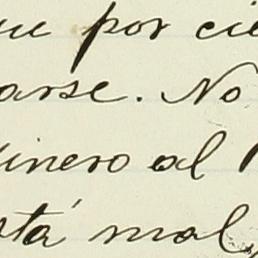 que por cie
arse. No
dinero al
stá mal,